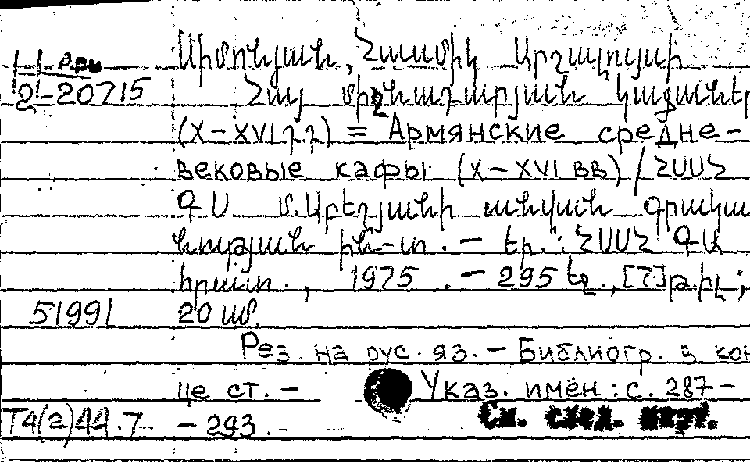 Արм
2-20715
Սիմոնյան, Հասմիկ Արշալույսի
Հայ միջնադարյան կաֆաներ
(X-XVI դդ) = Армянские средне-
вековые кафы (X-XVI вв) / ՀՍՍՀ
ԳԱ Մ.Աբեղյանի անվան գրակա
նության ին-տ. - Եր.: ՀՍՍՀ ԳԱ
հրատ., 1975. - 295 էջ, [7] թիլ;
51991 20 սմ.
Рез. на рус. яз. - Библиогр. в кон
це ст. - Указ. имен: с. 287-
Т4(2)44.7 - 293.
См. след. карт.